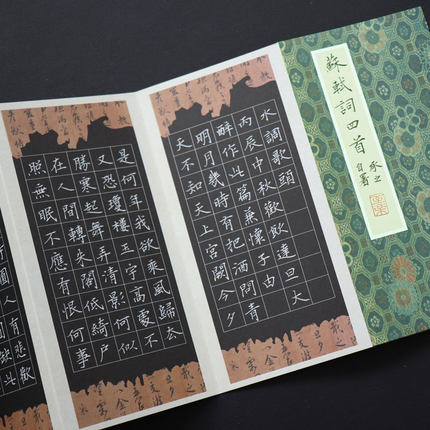 蘇軾詞四首
承之
自署
水調歌頭
丙辰中秋歡飲達旦大
醉作此篇兼懷子由
明月幾時有把酒問青
天不知天上宮闕今夕
是何年我欲乘風歸去
又恐瓊樓玉宇高處不
勝寒起舞弄清影何似
在人間轉朱閣低綺戶
照無眠不應有恨何事
圓人有悲歡
圓缺此